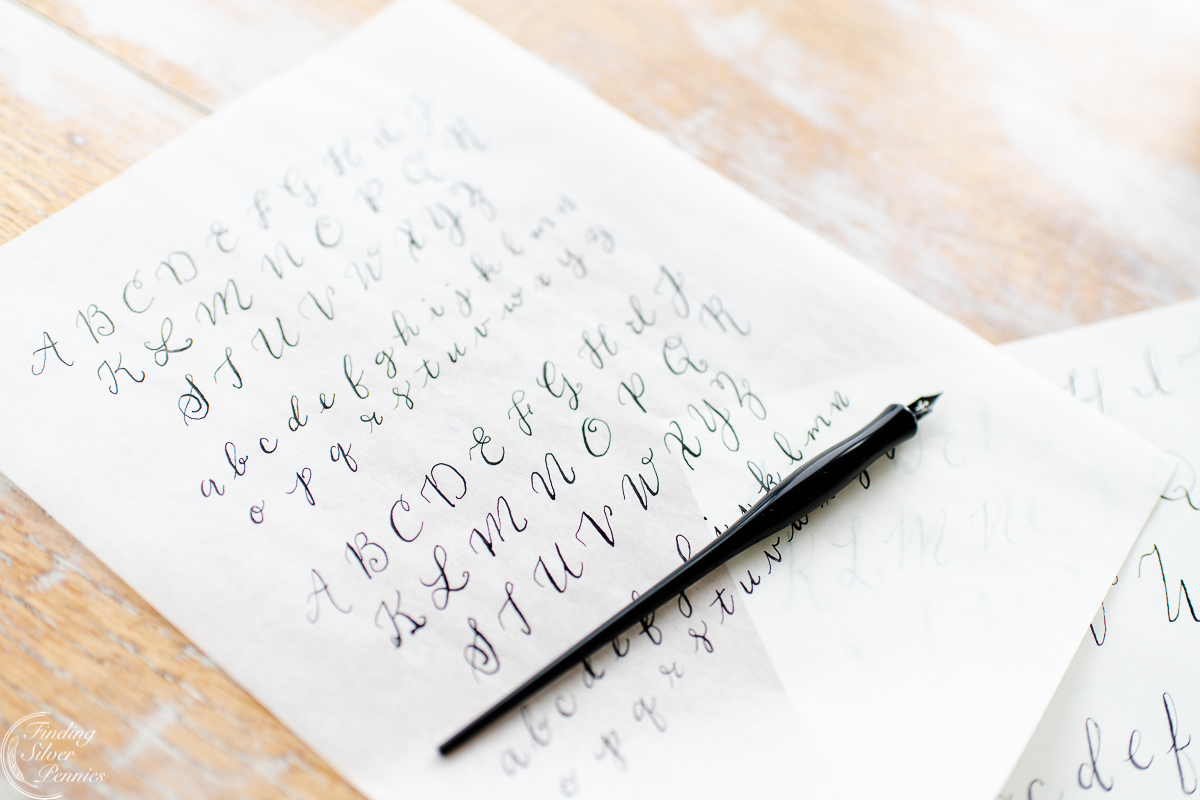 A B C D E F G H I J
K L M N O P Q R
S T U V W X Y Z
a b c d e f g h i j k l m n
o p q r s t u v w x y z
A B C D E F G H I J
K L M N O P Q R
S T U V W X Y Z
a b c d e f g h i j k l m n
o p q r s t u v w
K L M N
c d e f
Finding
Silver
Pennies